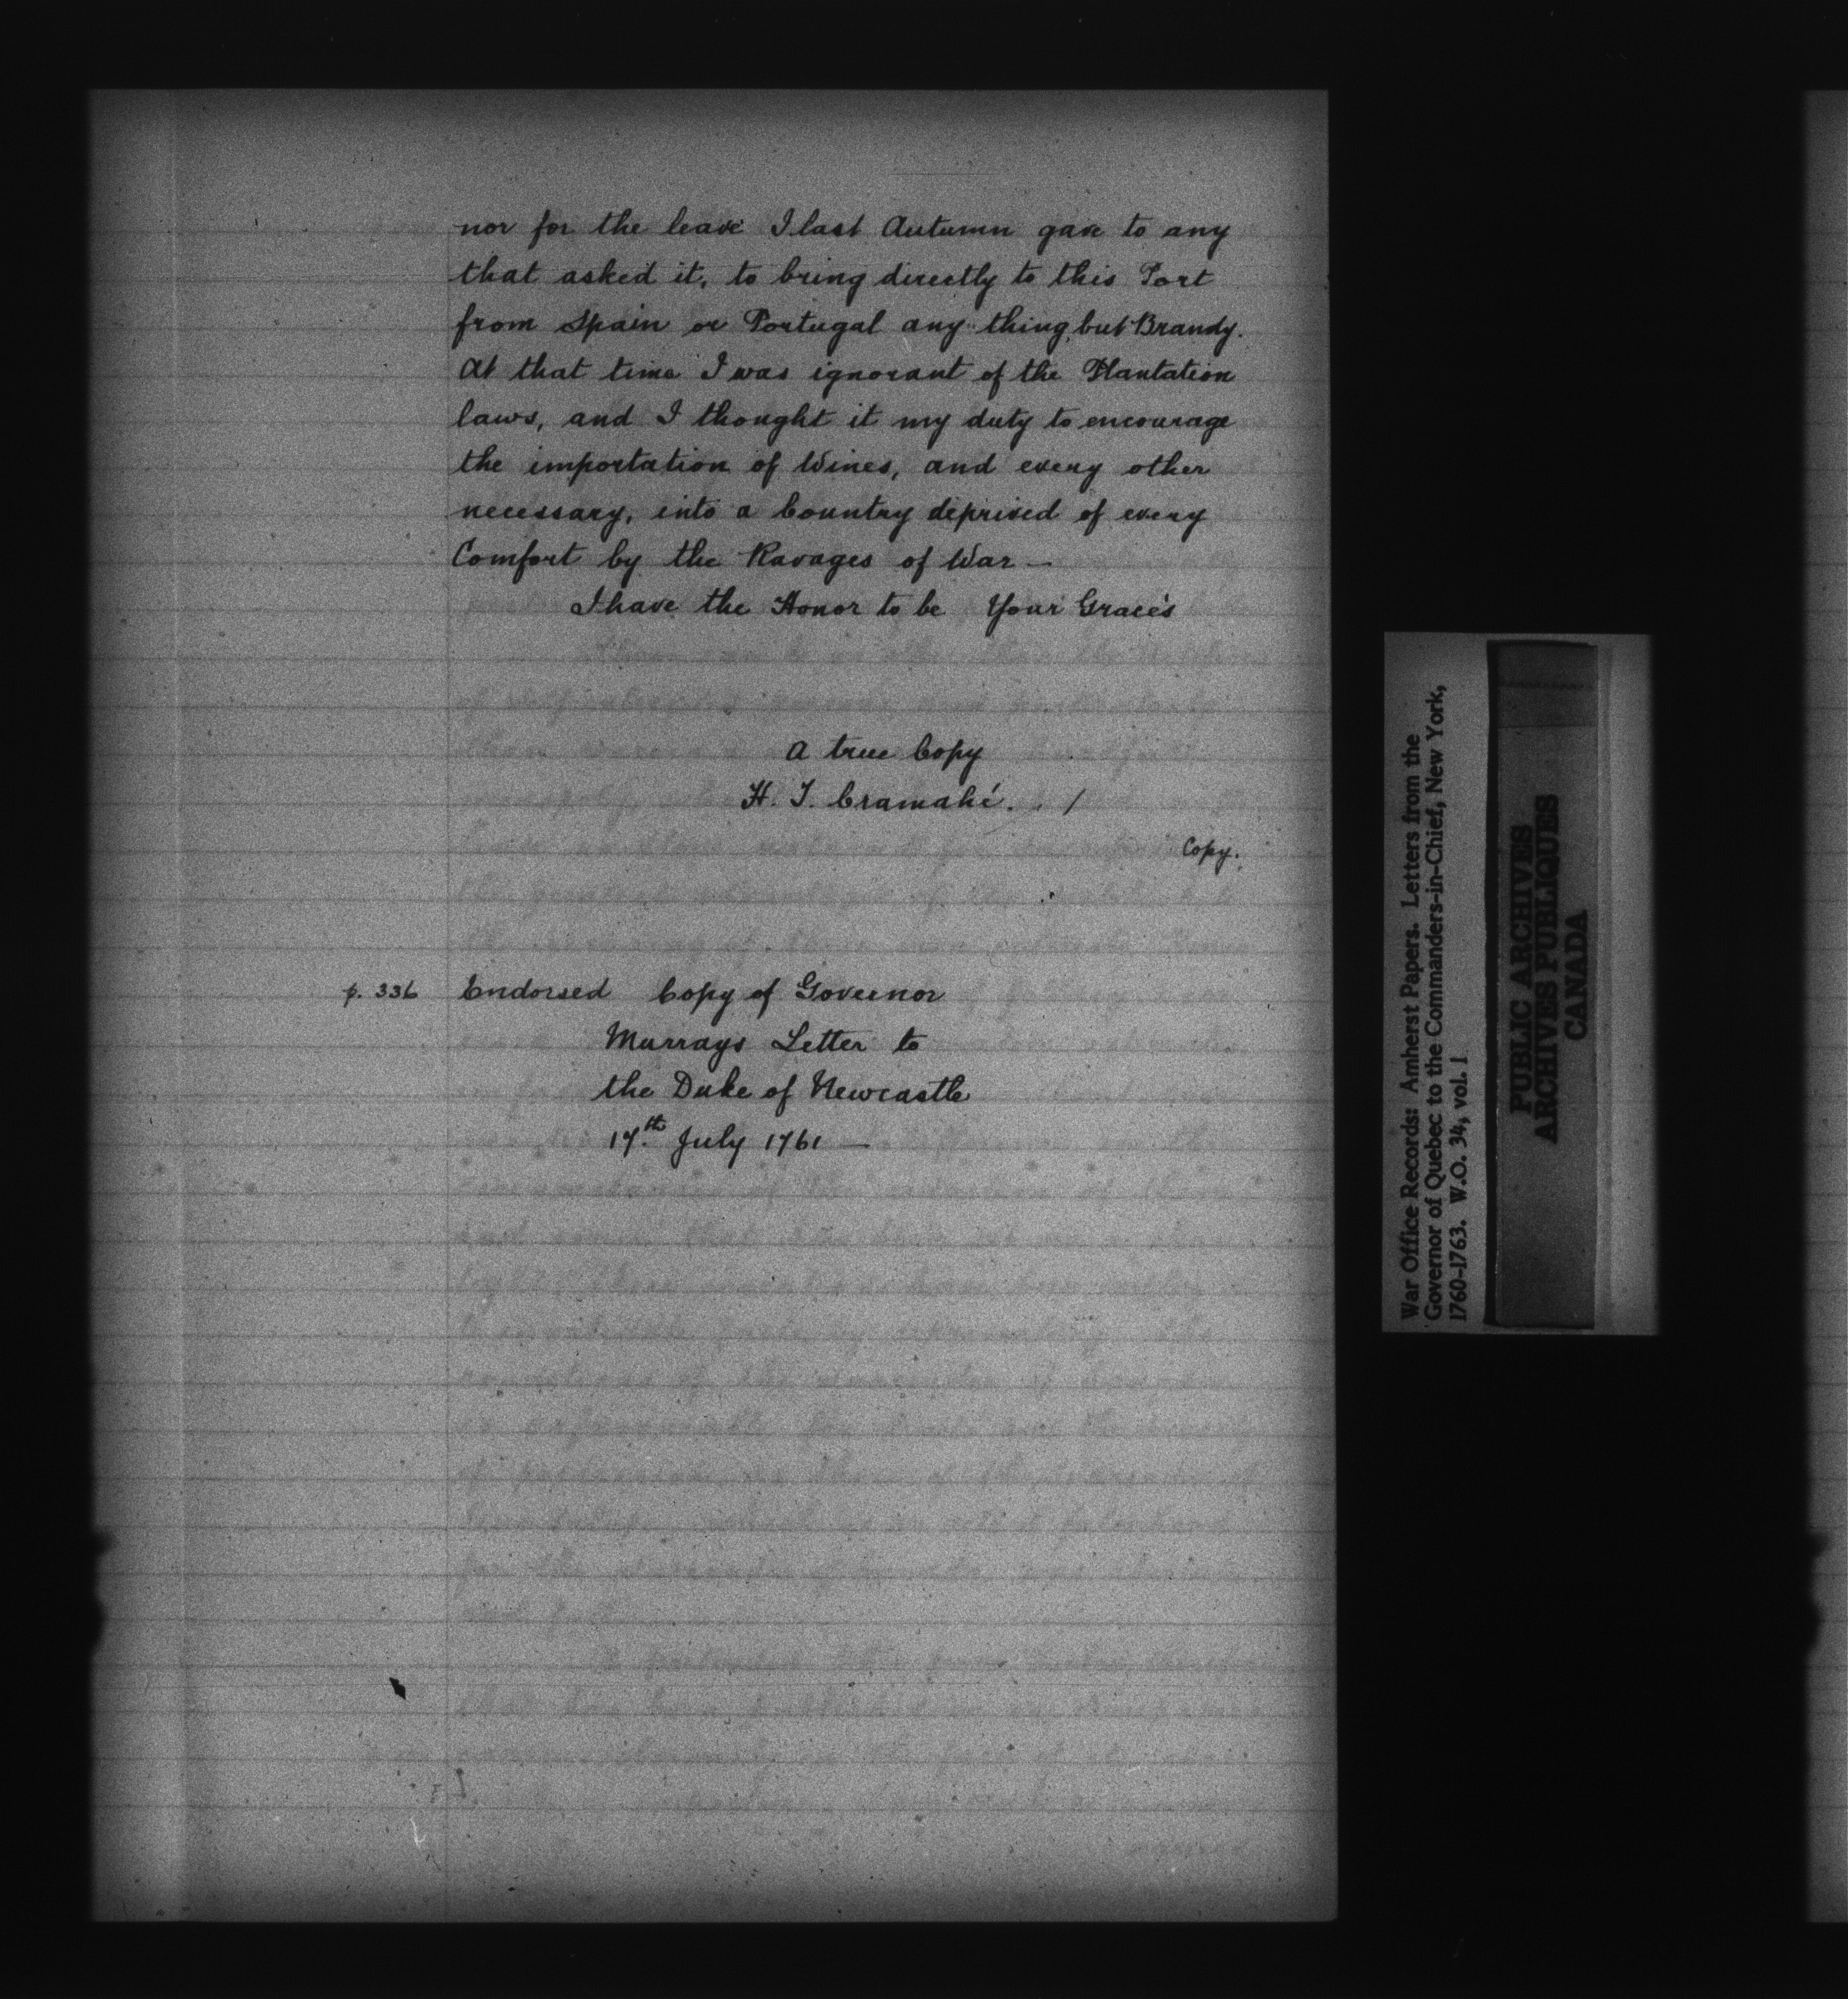 nor for the leave I last Autumn gave to any
that asked it, to bring directly to this Port
from Spain or Portugal any thing, but Brandy.
At that time I was ignorant of the Plantation
laws, and I thought it my duty to encourage
the importation of Wines, and every other
necessary, into a Country deprived of every
Comfort by the Ravages of War —
I have the Honor to be Your Grace's
A true Copy
H. T. Cramahé. . /
Copy.
p. 336 Endorsed Copy of Governor
Murrays Letter to
the Duke of Newcastle
17.th July 1761 —
War Office Records: Amherst Papers. Letters from the
Governor of Quebec to the Commanders-in-Chief, New York,
1760-1763. W.O. 34, vol. 1
PUBLIC ARCHIVES
ARCHIVES PUBLIQUES
CANADA